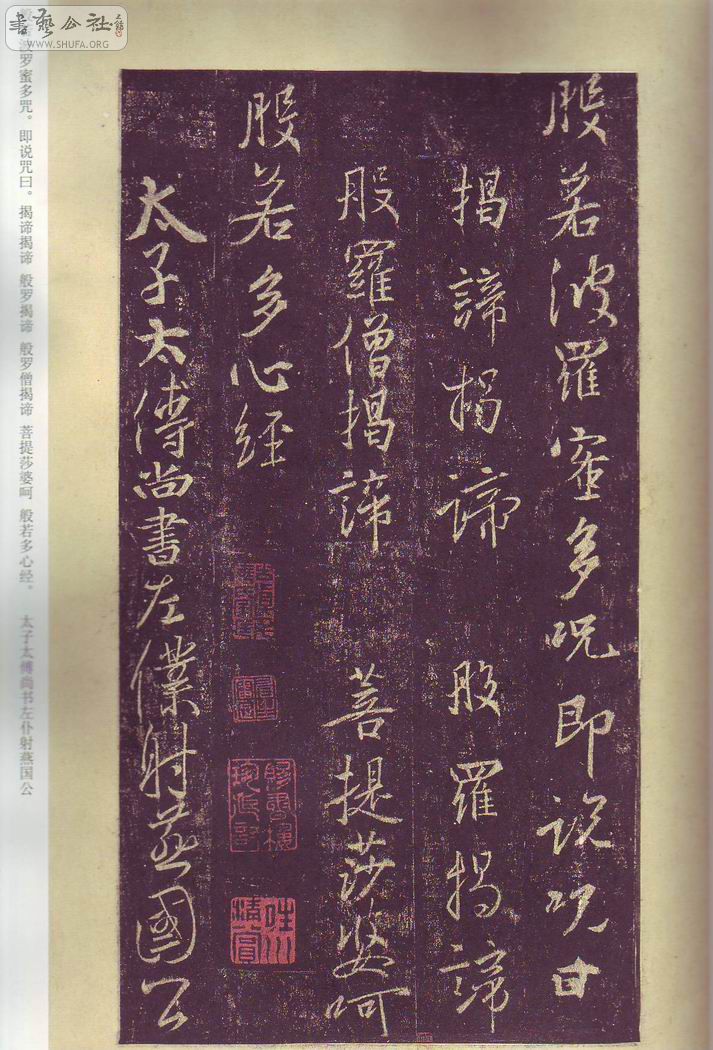 書藝公社
WWW.SHUFA.ORG
般若波羅蜜多呪即說呪曰
揭諦揭諦 般羅揭諦
般羅僧揭諦 菩提莎婆呵
般若多心經
太子太傅尚書左僕射燕國公
般若波罗蜜多咒。即说咒曰。揭谛揭谛 般罗揭谛 般罗僧揭谛 菩提莎婆呵 般若多心经。 太子太傅尚书左仆射燕国公